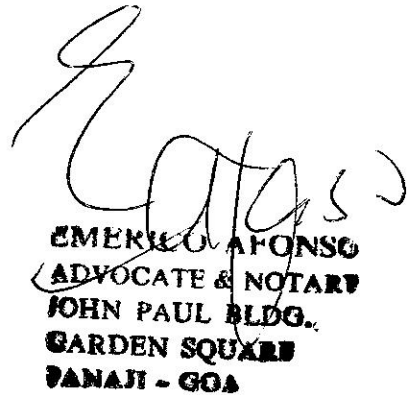 EMERICO AFONSO
ADVOCATE & NOTARY
JOHN PAUL BLDG.,
GARDEN SQUARE
PANAJI - GOA